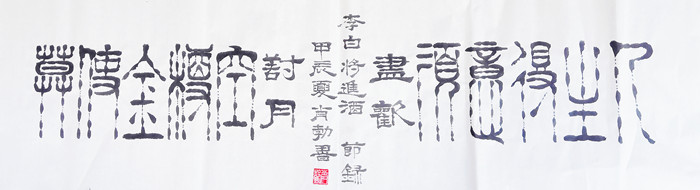 人生得意須盡歡
莫使金樽空對月
李白將進酒 節録
甲辰夏肖勃書